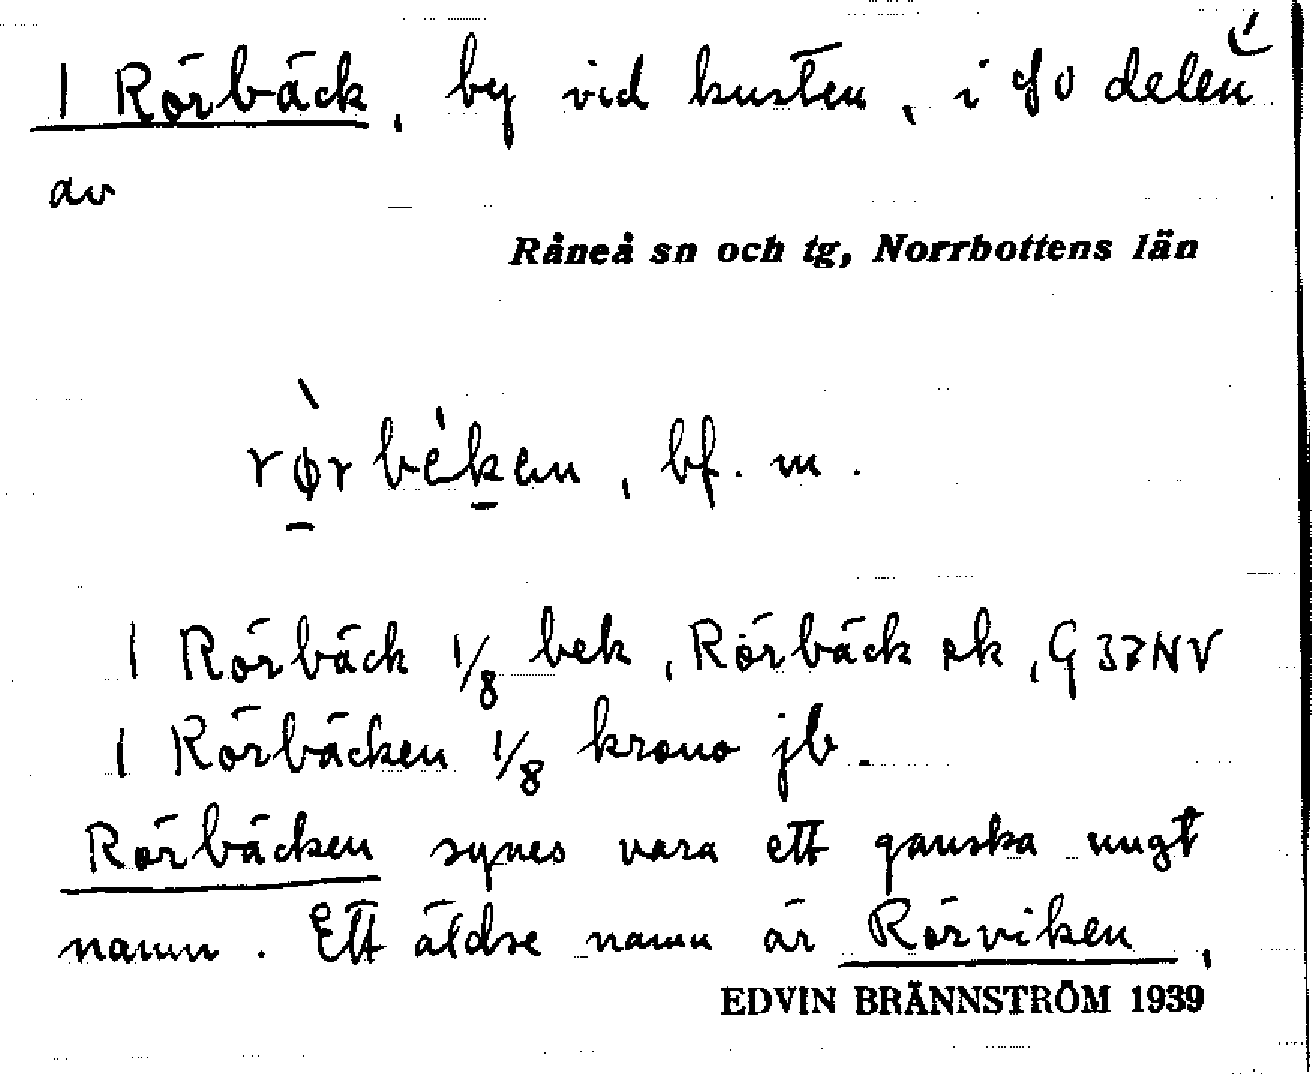 1 Rörbäck, by vid kusten, i SO delen
av
Råneå sn och tg, Norrbottens län
rø̀rbèken, bf. m.
1 Rörbäck 1/8 bek, Rörbäck ek, G 37 NV
1 Rörbäcken 1/8 krono jb.
Rörbäcken synes vara ett ganska ungt
namn. Ett äldre namn är Rörviken,
EDVIN BRÄNNSTRÖM 1939